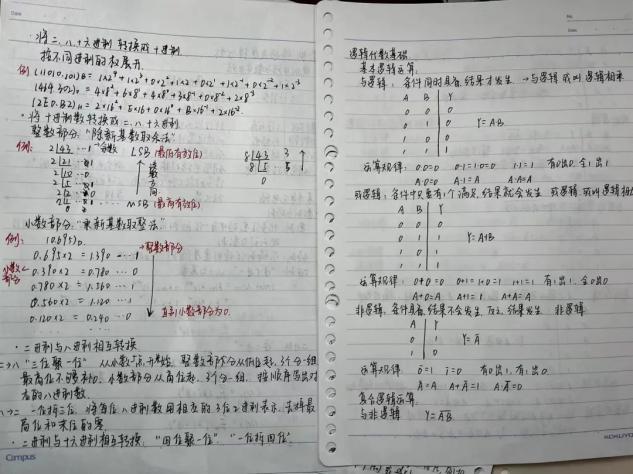 Date
·将二、八、十六进制转换成十进制
按不同进制的权展开.
例 (11010.101)B = 1×2⁴ + 1×2³ + 0×2² + 1×2 + 0×2⁰ + 1×2⁻¹ + 0×2⁻² + 1×2⁻³
= 4×8³ + 6×8² + 4×8¹ + 3×8⁰ + 0×8⁻¹ + 2×8⁻²
(2E0.B2)H = 2×16² + E×16 + 0×16⁰ + B×16⁻¹ + 2×16⁻²
·将十进制数转换成二、八、十六进制
整数部分:"除新基数取余法"
例: 2 43 … 1 余数 LSB (最低有效位)
8 43 3
2 21
8 5 5
2 10 … 0
0
2 5
2 2
MSB (最高有效位)
小数部分:"乘新基数取整法"
例: (0.695)D
→整数部分
0.695×2 = 1.390 … 1
小数部分
0.390×2 = 0.780 … 0
0.780×2 = 1.560 … 1
0.560×2 = 1.120 … 1
直到小数部分为0.
0.120×2 = 0.240 … 0
·二进制与八进制相互转换
二→八 "三位聚一位" 从小数点开始, 整数部分从低位起, 3个分一组
最高位不够补0. 小数部分从高位起, 3个分一组. 按顺序写出对
应的八进制数.
八→二 一位拆三位. 将每位八进制数用相应的3位2进制表示, 去掉最
高位和末位的零
·二进制与十六进制相互转换. "四位聚一位" "一位拆四位"
Campus
No.
Date
逻辑代数基础
基本逻辑运算
与逻辑: 条件同时具备, 结果才发生 → 与逻辑 或叫 逻辑相乘
A B Y
0 0 0
0 1 0 Y=AB
1 0 0
1 1 1
运算规律: 0·0=0 0·1=1·0=0 1·1=1 有0出0. 全1出1
A·0=0 A·1=A A·A=A
或逻辑: 条件中只要有1个满足, 结果就会发生 或逻辑 或叫逻辑相加
A B Y
0 0 0
0 1 1 Y=A+B
1 0 1
1 1 1
运算规律: 0+0=0 0+1=1+0=1 1+1=1 有1出1. 全0出0
A+0=A A+1=1 A+A=A
非逻辑: 条件具备, 结果不会发生. 反之, 结果发生 非逻辑
A Y
0 1 Y=A̅
1 0
运算规律 0̅=1 1̅=0 有0出1, 有1出0.
A̿=A A+A̅=1 A·A̅=0
复合逻辑运算
与非逻辑 Y=A̅B̅
KOKUYO